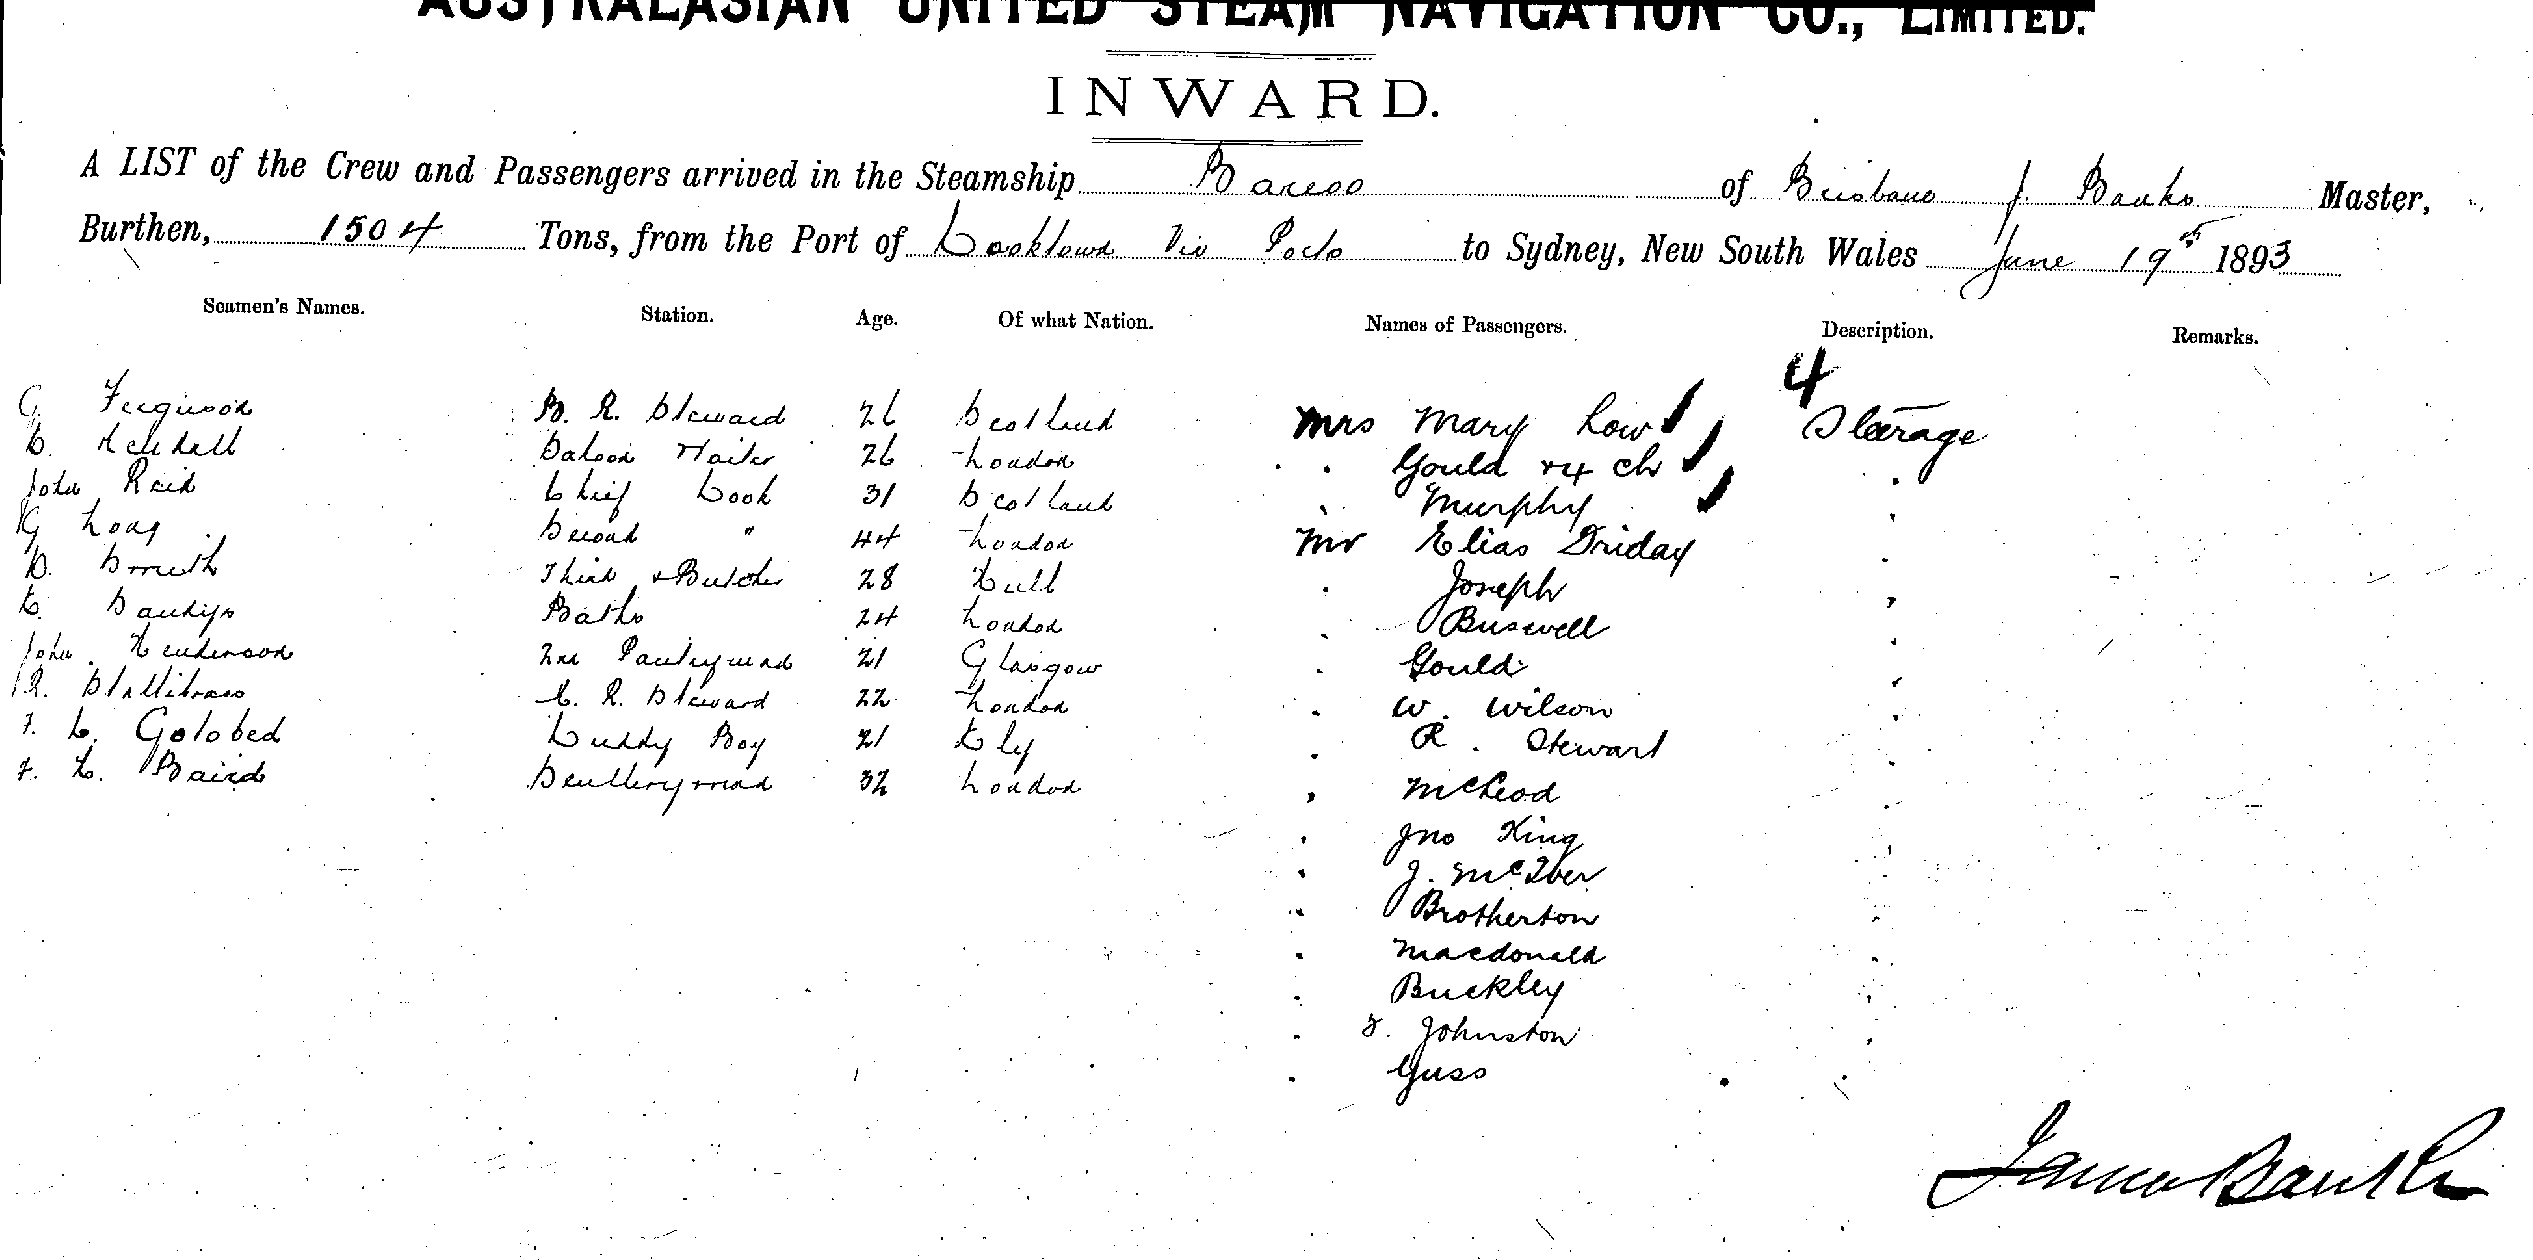 AUSTRALASIAN UNITED STEAM NAVIGATION CO., LIMITED.
INWARD.
A LIST of the Crew and Passengers arrived in the Steamship Barcoo of Brisbane J. Banks Master,
Burthen, 1504 Tons, from the Port of Cooktown Via Ports to Sydney, New South Wales June 19th 1893
Seamen's Names. Station. Age. Of what Nation. Names of Passengers. Description. Remarks.
4
G. Ferguson B. R. Steward 26 Scotland Mrs Mary Low Steerage
C. Kendall Saloon Waiter 26 London " Gould + 4 ch "
John Reid Chief Cook 31 Scotland " Murphy "
G Long Second " 44 London Mr Elias Driday "
S. Smith Third & Butcher 28 Hull " Joseph "
C. Baths 24 London " Buswell "
John Henderson 2nd Pantryman 21 Glasgow " Gould "
R. C. R. Steward 22 London " W. Wilson "
F. C. Golobed Cuddy Boy 21 Ely " R. Stewart "
F. C. Baird Sculleryman 32 London " McLeod "
" Jno King "
" J. McIver "
" Brotherton "
" Macdonald "
" Buckley "
" Johnston "
" Guss "
James Banks